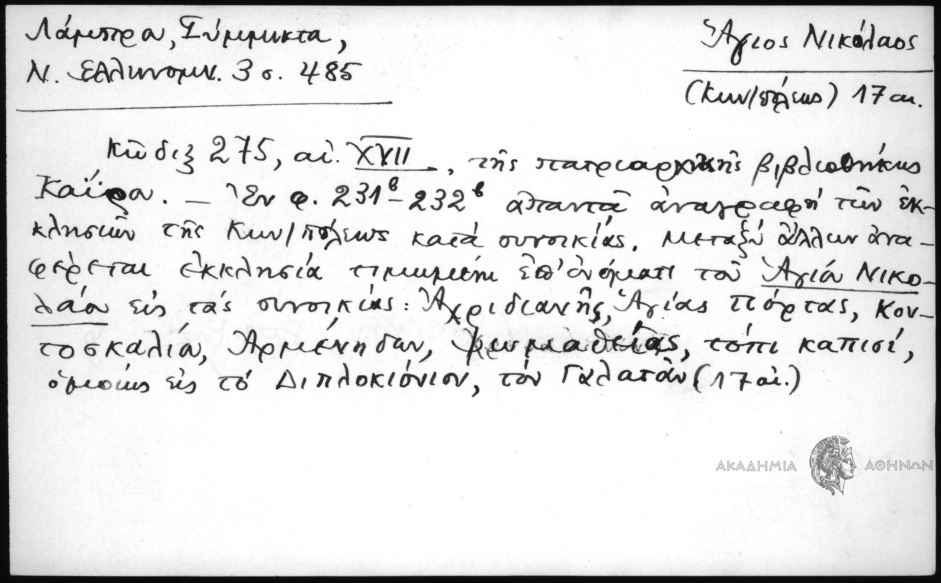 Λάμπρου, Σύμμικτα,
Ν. Ἑλληνομν. 3 σ. 485
Ἅγιος Νικόλαος
(Κων/πόλεως) 17 αι.
Κῶδιξ 275, αἰ. XVII, τῆς πατριαρχικῆς βιβλιοθήκης
Καΐρου. — Ἐν φ. 231β–232β ἀπαντᾶ ἀναγραφή τῶν ἐκ-
κλησιῶν τῆς Κων/πόλεως κατά συνοικίας. Μεταξύ ἄλλων ἀνα-
φέρεται ἐκκλησία τιμωμένη ἐπ' ὀνόματι τοῦ Ἁγίου Νικο-
λάου εἰς τάς συνοικίας: Ἀχριδιανῆς, Ἁγίας Πόρτας, Κον-
τοσκαλίου, Ἀρμένηδων, Ψωμαθείας, τόπι καπισί,
ὁμοίως εἰς τό Διπλοκιόνιον, τόν Γαλατᾶν (17 αἰ.)
ΑΚΑΔΗΜΙΑ ΑΘΗΝΩΝ